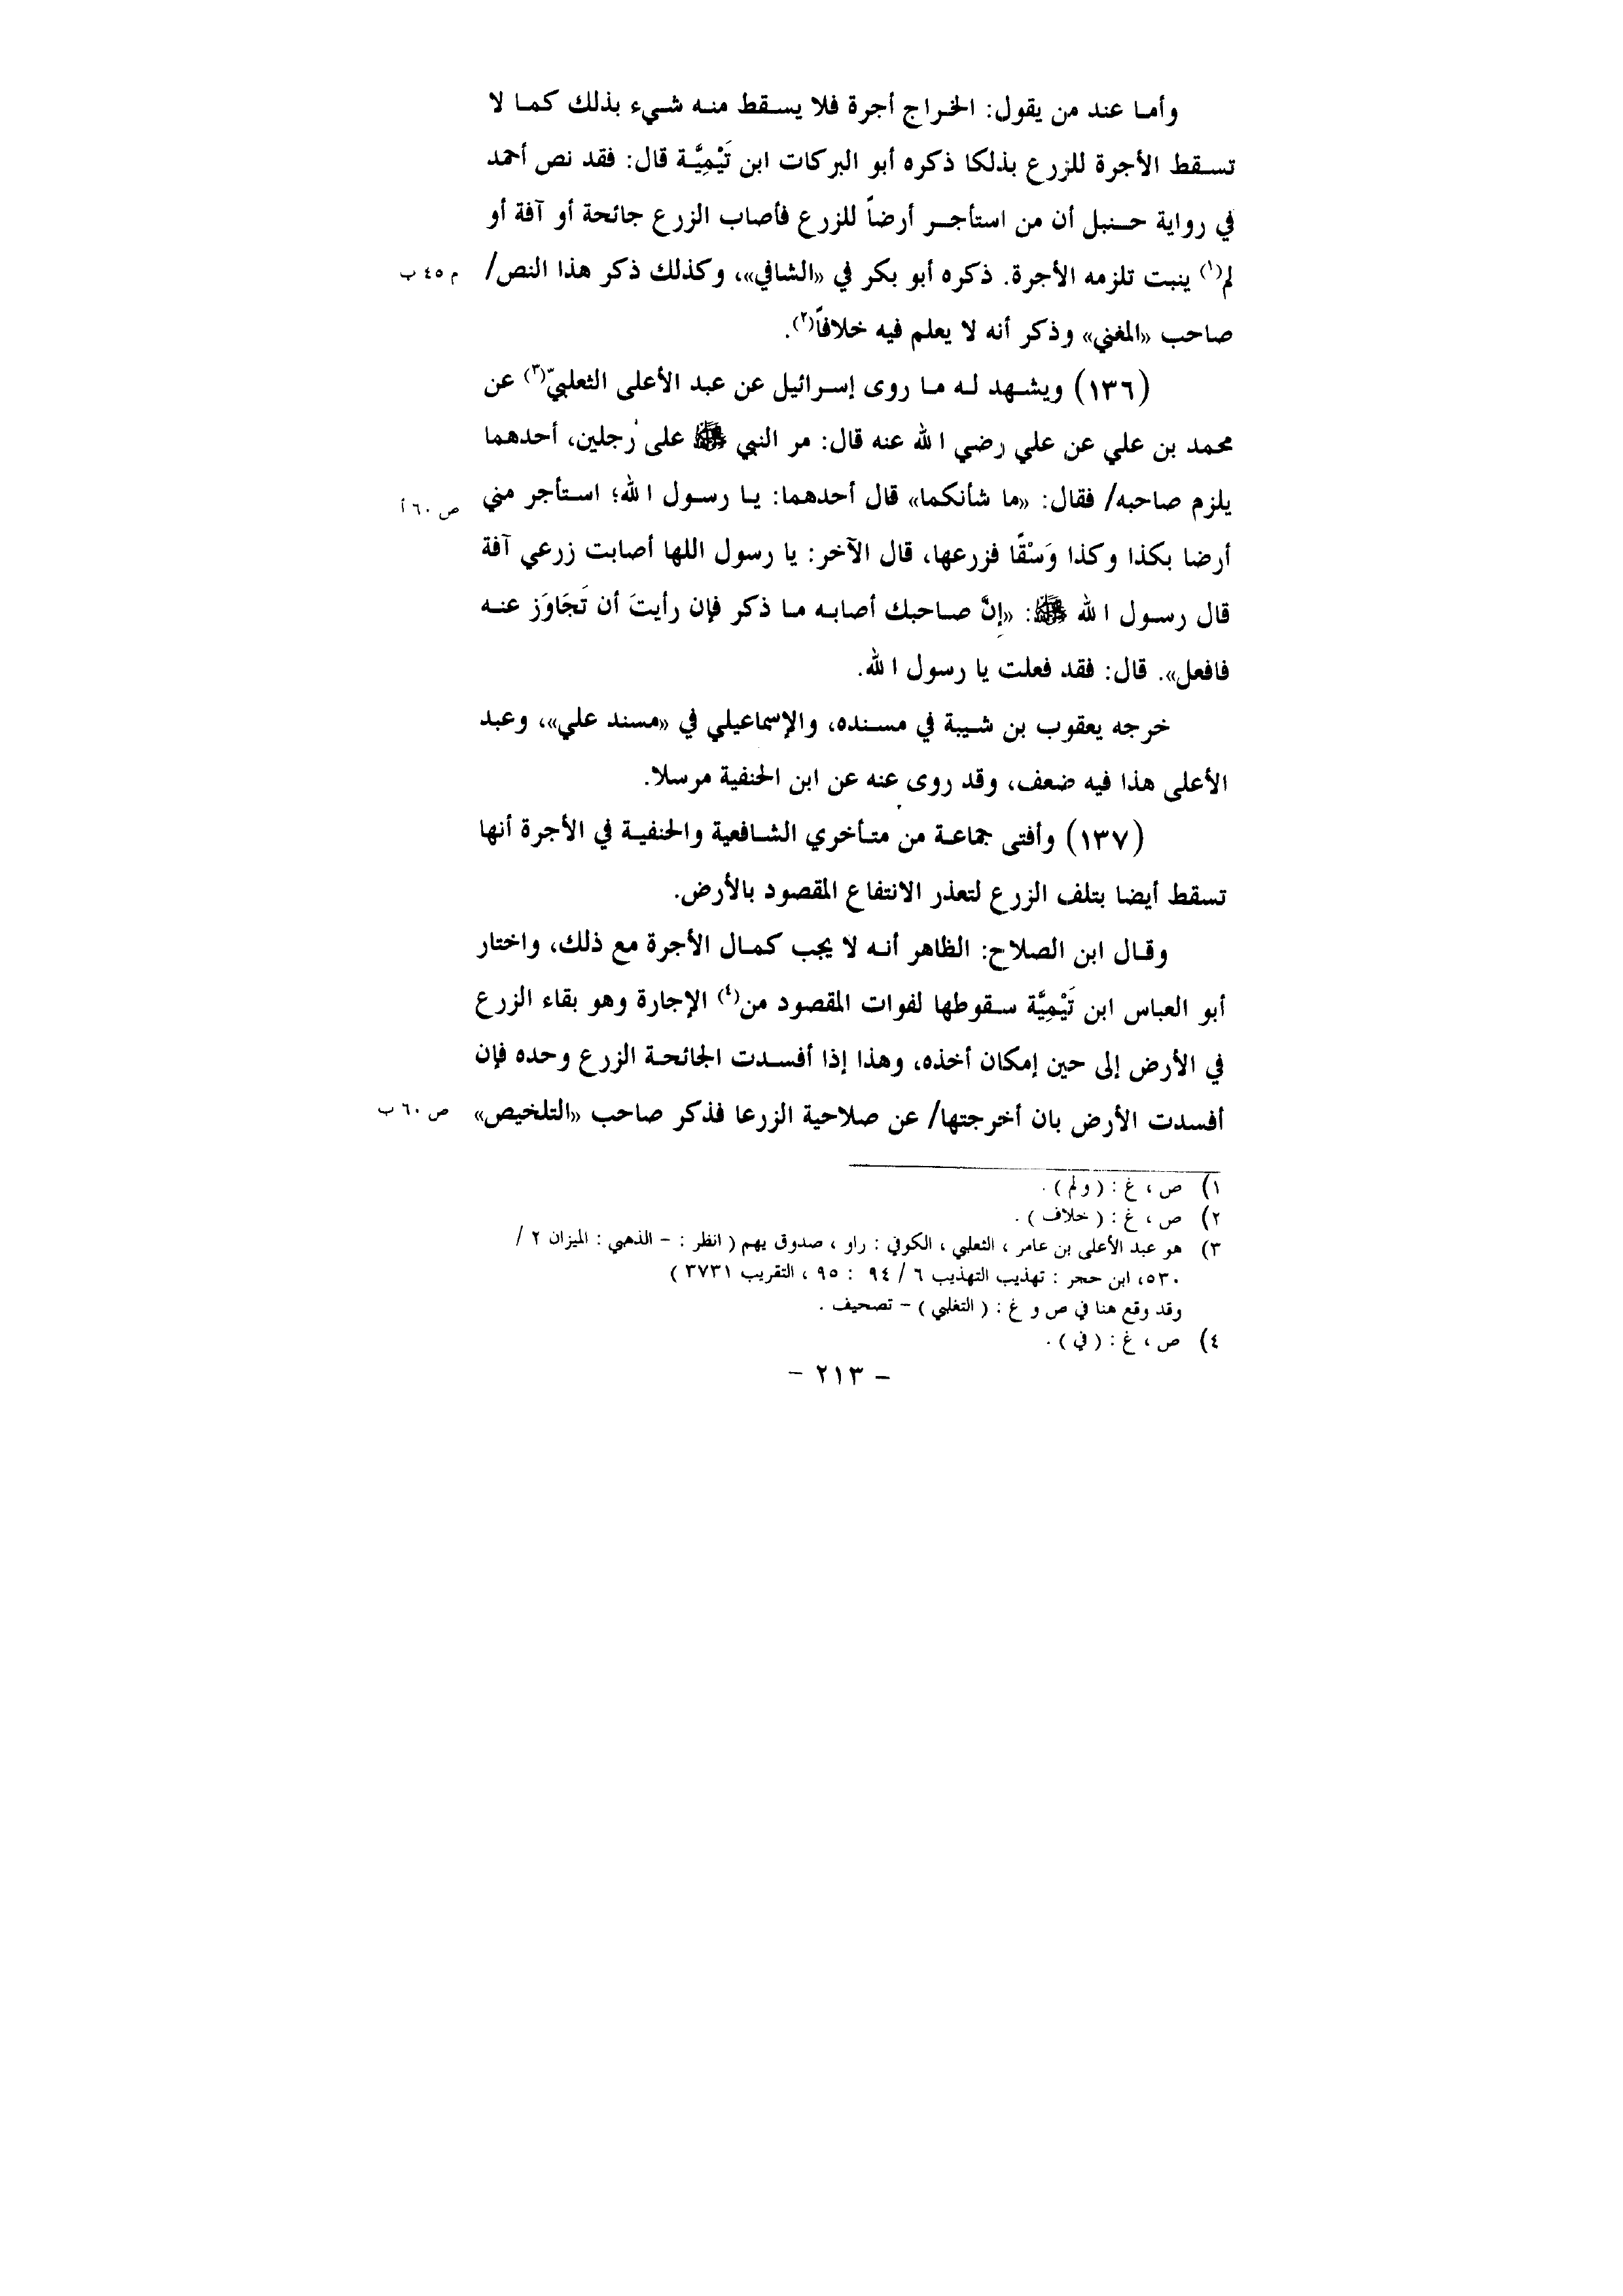 وأما عند من يقول: الخراج أجرة فلا يسقط منه شيء بذلك كما لا
تسقط الأجرة للزرع بذلكا ذكره أبو البركات ابن تَيْمِيَّة قال: فقد نص أحمد
في رواية حنبل أن من استأجر أرضاً للزرع فأصاب الزرع جائحة أو آفة أو
لم(١) ينبت تلزمه الأجرة. ذكره أبو بكر في «الشافي»، وكذلك ذكر هذا النص/ م ٤٥ ب
صاحب «المغني» وذكر أنه لا يعلم فيه خلافاً(٢).
(١٣٦) ويشهد له ما روى إسرائيل عن عبد الأعلى الثعلبيّ(٣) عن
محمد بن علي عن علي رضي الله عنه قال: مر النبي ﷺ على رجلين، أحدهما
يلزم صاحبه/ فقال: «ما شأنكما» قال أحدهما: يا رسول الله؛ استأجر مني ص ٦٠ أ
أرضا بكذا وكذا وَسْقًا فزرعها، قال الآخر: يا رسول اللها أصابت زرعي آفة
قال رسول الله ﷺ: «إنَّ صاحبك أصابه ما ذكر فإن رأيتَ أن تَجَاوَز عنه
فافعل». قال: فقد فعلت يا رسول الله.
خرجه يعقوب بن شيبة في مسنده، والإسماعيلي في «مسند علي»، وعبد
الأعلى هذا فيه ضعف، وقد روى عنه عن ابن الحنفية مرسلا.
(١٣٧) وأفتى جماعة من متأخري الشافعية والحنفية في الأجرة أنها
تسقط أيضا بتلف الزرع لتعذر الانتفاع المقصود بالأرض.
وقال ابن الصلاح: الظاهر أنه لا يجب كمال الأجرة مع ذلك، واختار
أبو العباس ابن تَيْمِيَّة سقوطها لفوات المقصود من(٤) الإجارة وهو بقاء الزرع
في الأرض إلى حين إمكان أخذه، وهذا إذا أفسدت الجائحة الزرع وحده فإن
أفسدت الأرض بان أخرجتها/ عن صلاحية الزرعا فذكر صاحب «التلخيص» ص ٦٠ ب
١) ص ، غ : ( ولم ) .
٢) ص ، غ : ( خلاف ) .
٣) هو عبد الأعلى بن عامر ، الثعلبي ، الكوفي : راو ، صدوق يهم ( انظر : - الذهبي : الميزان ٢ /
٥٣٠، ابن حجر : تهذيب التهذيب ٦ / ٩٤ : ٩٥ ، التقريب ٣٧٣١ )
وقد وقع هنا في ص و غ : ( التغلبي ) - تصحيف .
٤) ص ، غ : ( في ) .
- ٢١٣ -